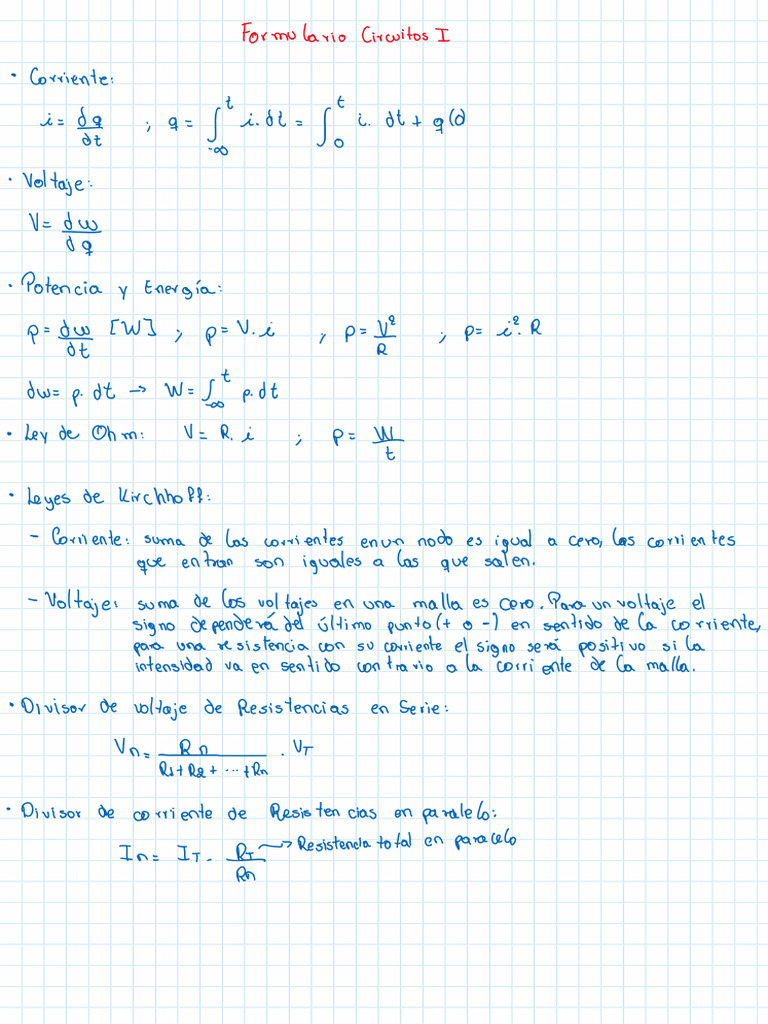 Formulario Circuitos I
• Corriente:
i = dq/dt ; q = ∫_{-∞}^{t} i. dt = ∫_{0}^{t} i. dt + q(0
• Voltaje:
V = dw/dq
• Potencia y Energía:
p = dw/dt [W] ; p = V. i ; p = V²/R ; p = i². R
dw = p. dt → W = ∫_{-∞}^{t} p. dt
• Ley de Ohm: V = R. i ; p = W/t
• Leyes de Kirchhoff:
- Corriente: suma de las corrientes en un nodo es igual a cero, las corrientes
que entran son iguales a las que salen.
- Voltaje: suma de los voltajes en una malla es cero. Para un voltaje el
signo dependerá del último punto (+ o -) en sentido de la corriente,
para una resistencia con su corriente el signo será positivo si la
intensidad va en sentido contrario a la corriente de la malla.
• Divisor de voltaje de Resistencias en Serie:
Vn = Rn/(R1 + R2 + ... + Rn) . VT
• Divisor de corriente de Resistencias en paralelo:
In = IT . RT/Rn → Resistencia total en paralelo